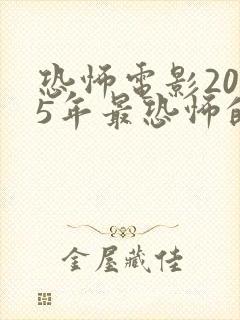 恐怖电影20
5年最恐怖的
金屋藏佳